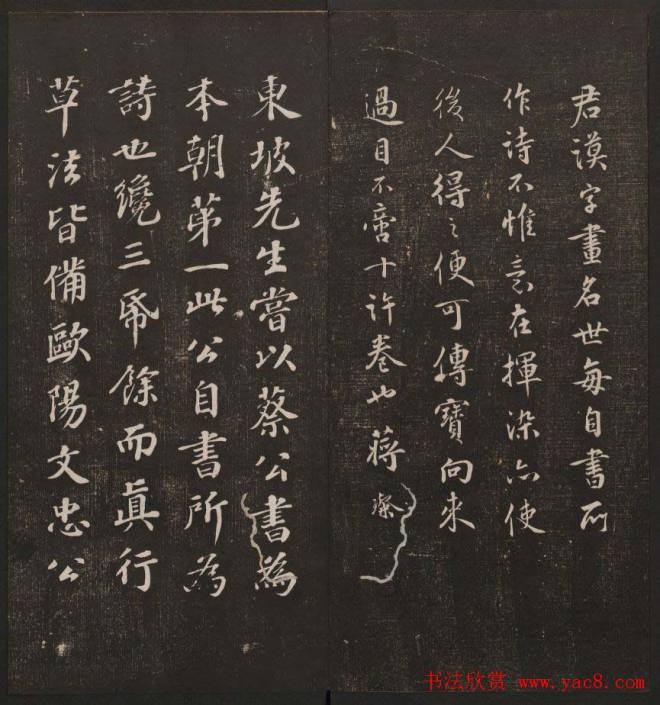 君謨字畫名世每自書所
作詩不惟意在揮染亦使
後人得之便可傳寶向來
過目不啻十許卷也蔣璨
東坡先生嘗以蔡公書為
本朝第一此公自書所為
詩也纔三帋餘而真行
草法皆備歐陽文忠公
书法欣赏 www.yac8.com